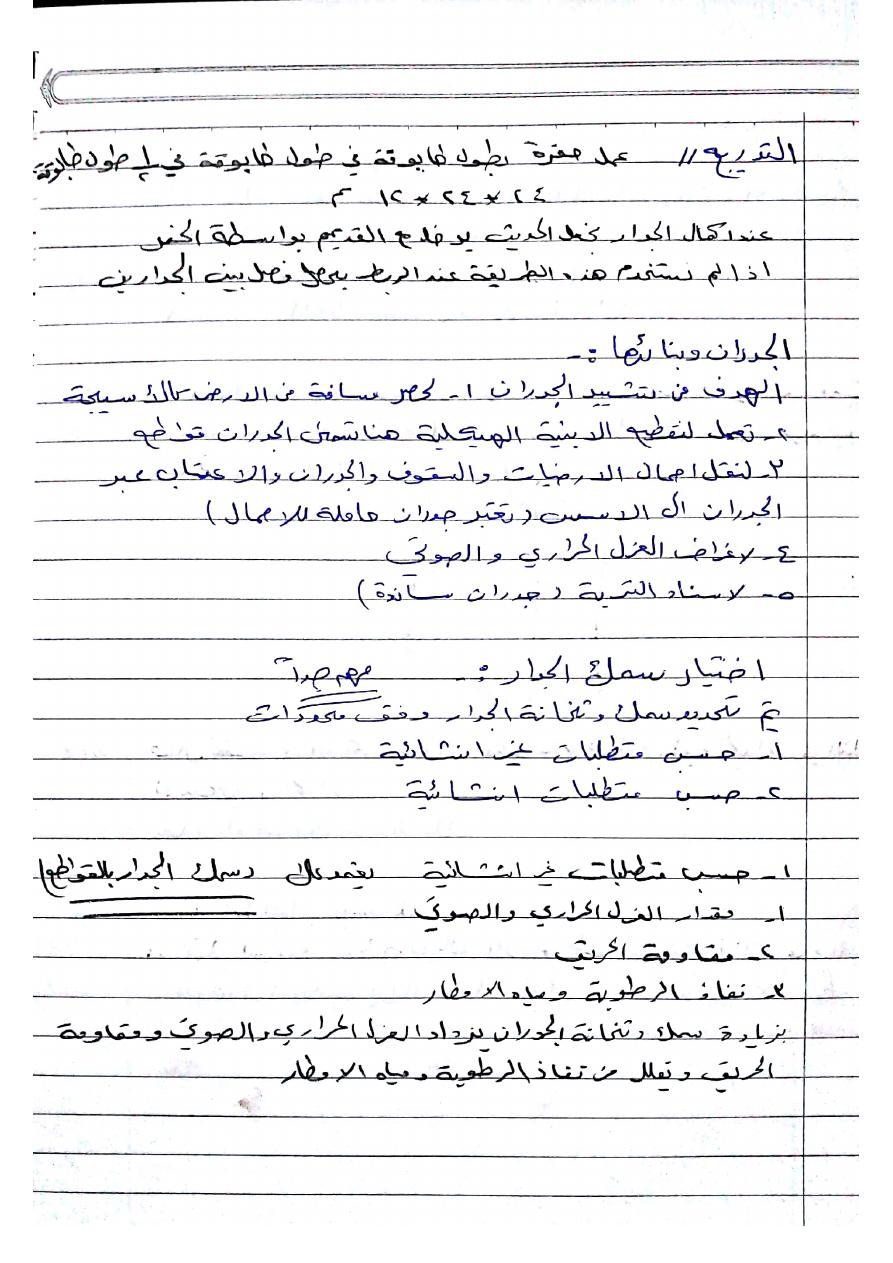 التدريج // عمل حفرة بطول طابوقة في طول طابوقة في ½ طول طابوقة
٢٤ * ٢٤ * ١٢ سم
عند اكمال الجدار نخل الحديث يو خلاع القديم بواسطة الحفر
اذا لم نستخدم هذه الطريقة عند الربط يحصل فصل بين الجدارين
الجدران وبنائها :-
الهدف من تشييد الجدران ١- لحصر مسافة من الارض كالاسيجة
٢- تعمل لتقطيع الابنية الهيكلية هنا تسمى الجدران قواطع
٣- لنقل احمال الارضيات والسقوف والجدران والاعتاب عبر
الجدران الى الاسس (تعتبر جدران حاملة للاحمال)
٤- لاغراض العزل الحراري والصوتي
٥- لاسناد التربة (جدران ساندة)
اختيار سمك الجدار :- مهم جداً
يتم تحديد سمك وثخانة الجدار وفق محددات
١- حسب متطلبات غير انشائية
٢- حسب متطلبات انشائية
١- حسب متطلبات غير انشائية يعتمد على (سمك الجدار بالقواطع)
١- مقدار العزل الحراري والصوتي
٢- مقاومة الحريق
٣- نفاذ الرطوبة ومياه الامطار
بزيادة سمك وثخانة الجدران يزداد العزل الحراري والصوتي ومقاومة
الحريق وتقلل من نفاذ الرطوبة ومياه الامطار